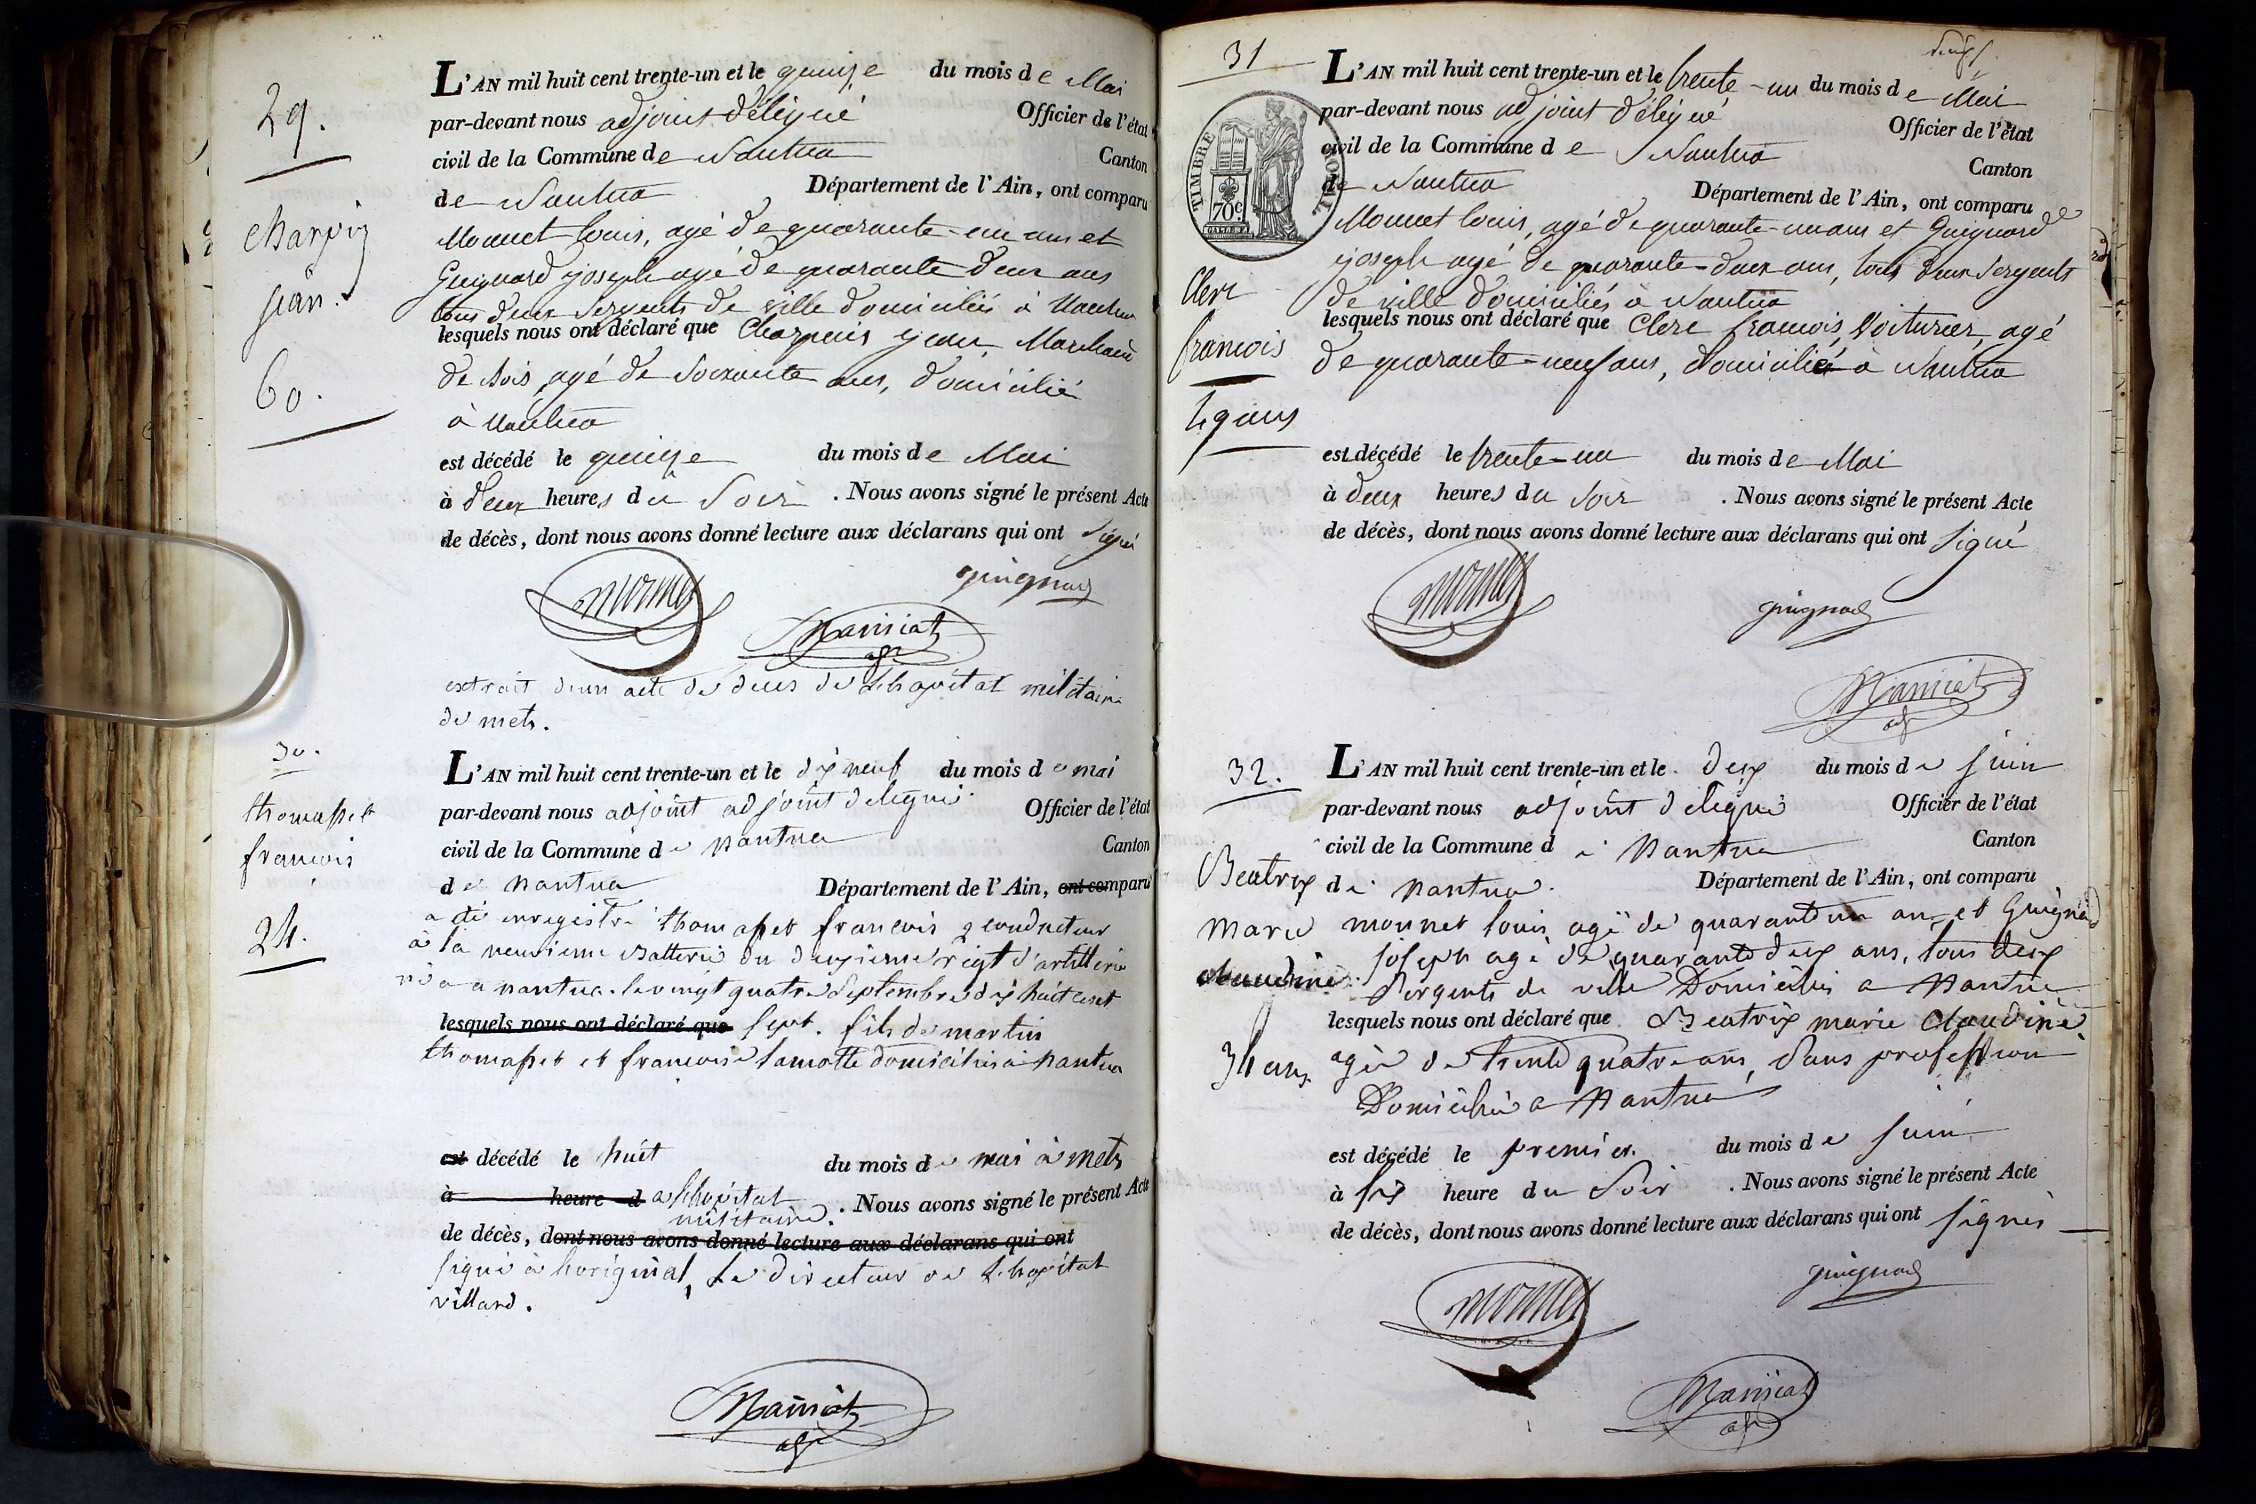 29.
Charpin
jean.
60.
L'AN mil huit cent trente-un et le quinze du mois de Mai
par-devant nous adjoint délégué Officier de l'état
civil de la Commune de Nantua Canton
de Nantua Département de l'Ain, ont comparu
Monnet louis, agé de quarante-un ans et
Guignard joseph agé de quarante deux ans
tous deux Sergents de ville domiciliés à Nantua
lesquels nous ont déclaré que Charpin jean, Marchand
de bois, agé de Soixante ans, domicilié
à Nantua
est décédé le quinze du mois de Mai
à deux heures du Soir. Nous avons signé le présent Acte
de décès, dont nous avons donné lecture aux déclarans qui ont signé
monnet
guignard
adj
extrait d'un acte de deces de l'hopital militaire
de metz.
30.
thomasset
françois
24.
L'AN mil huit cent trente-un et le dix neuf du mois de mai
par-devant nous adjoint adjoint delegué Officier de l'état
civil de la Commune de Nantua Canton
de Nantua Département de l'Ain, ont comparu
a été enregistré thomasset françois conducteur
à la neuvieme Batterie du deuxieme regt d'artillerie
né a nantua le vingt quatre Septembre dix huit cent
lesquels nous ont déclaré que sept. fils de martin
thomasset et francoise lamotte domiciliés à nantua
est décédé le huit du mois de mai à metz
à heure d a l'hopital
militaire. Nous avons signé le présent Acte
de décès, dont nous avons donné lecture aux déclarans qui ont
signé à l'original, Le directeur de L'hopital
villard.
adj
31
TIMBRE ROYAL
70c
Clerc
francois
49 ans
L'AN mil huit cent trente-un et le trente-un du mois de Mai
par-devant nous adjoint délégué Officier de l'état
civil de la Commune de Nantua Canton
de Nantua Département de l'Ain, ont comparu
Monnet louis, agé de quarante-un ans et Guignard
joseph agé de quarante-deux ans, tous deux Sergents
de ville domiciliés à Nantua
lesquels nous ont déclaré que Clerc francois, Voiturier, agé
de quarante-neuf ans, domicilié à Nantua
est décédé le trente-un du mois de Mai
à deux heures du Soir. Nous avons signé le présent Acte
de décès, dont nous avons donné lecture aux déclarans qui ont Signé
monnet
guignard
adj
32.
Beatrix
Marie
claudine
34 ans
L'AN mil huit cent trente-un et le deux du mois de juin
par-devant nous adjoint délégué Officier de l'état
civil de la Commune de Nantua Canton
de Nantua. Département de l'Ain, ont comparu
monnet louis agé de quarante un ans et Guignard
joseph agé de quarante deux ans, tous deux
Sergents de ville Domiciliés a Nantua
lesquels nous ont déclaré que Beatrix marie Claudine
agée de trente quatre ans, Sans profession
Domiciliée a Nantua
est décédé le premier du mois de juin
à six heure du Soir. Nous avons signé le présent Acte
de décès, dont nous avons donné lecture aux déclarans qui ont signés
guignard
monnet
adj